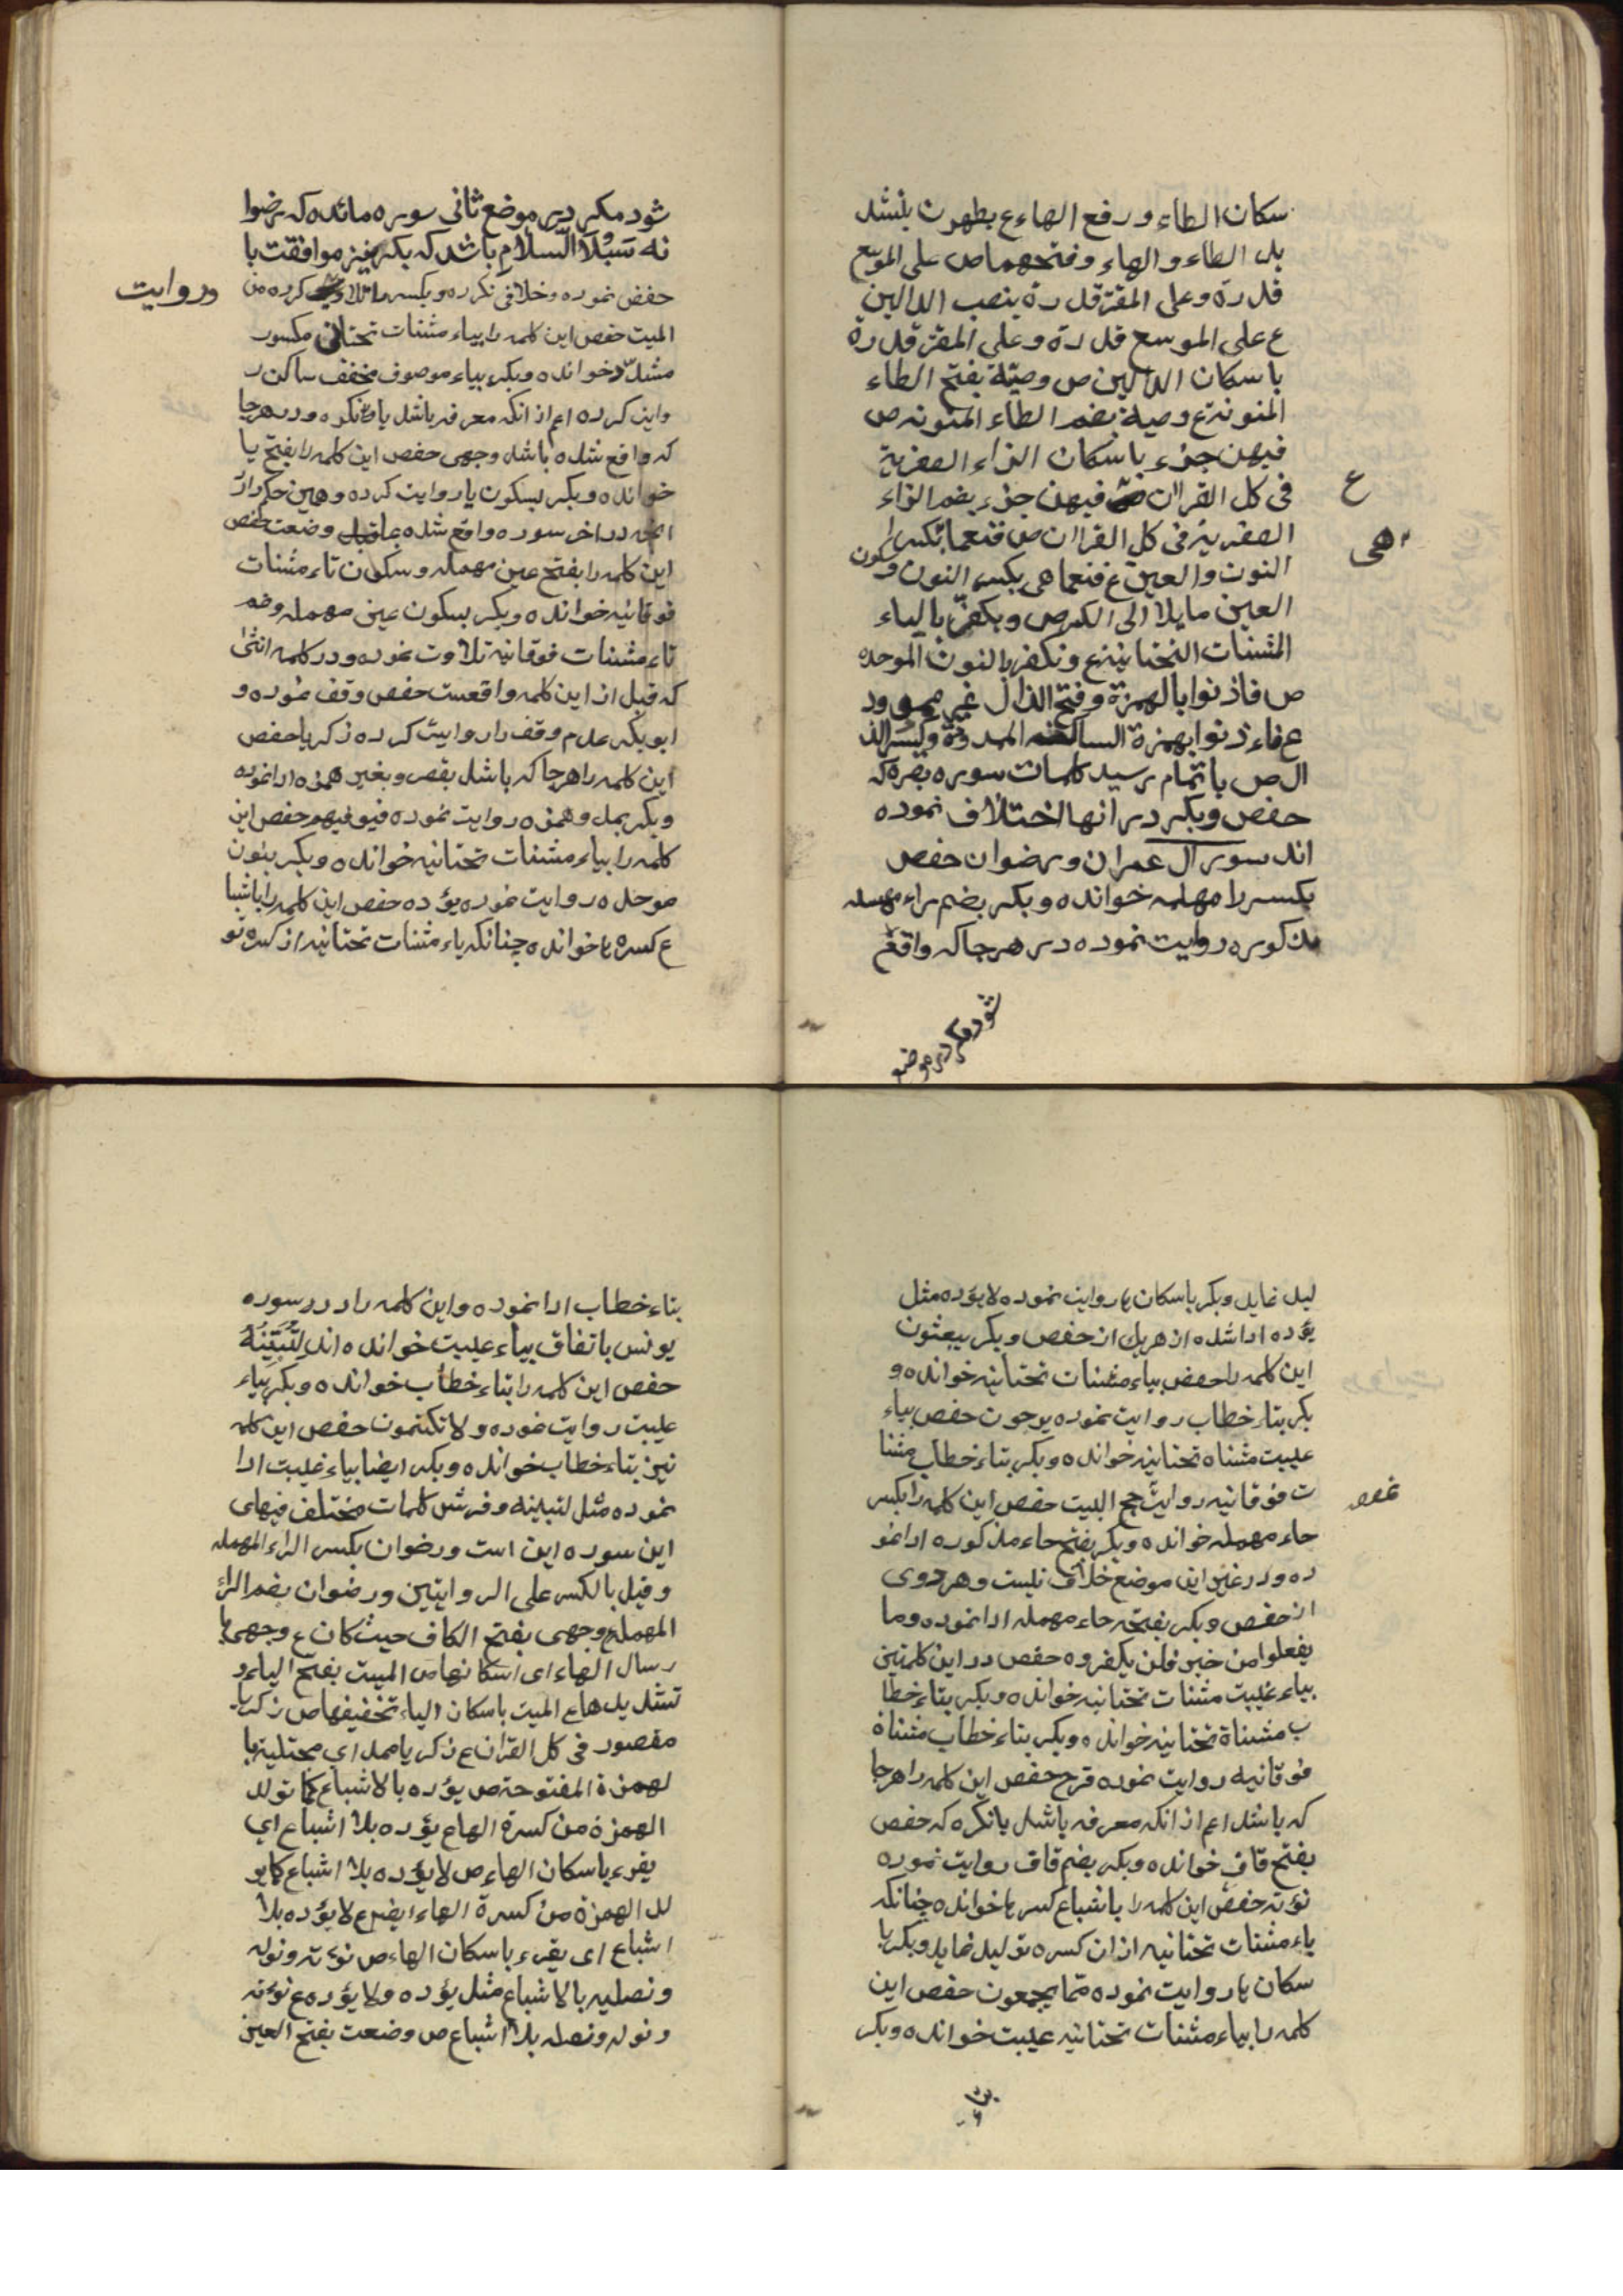 سكان الطاء و رفع الهاء ع يطهرن بتشد
يد الطاء و الهاء و فتحهما ص على الموسع
قدره و على المقتر قدره بنصب الدالين
ع على الموسع قدره و على المقتر قدره
باسكان الدالين ص وصية بفتح الطاء
المنونة ع وصية بضم الطاء المنونه ص
فيهن جزء باسكان الزاء الصفرية
فى كل القران فيهن جزء بضم الزاء
ع
الصفريه فى كل القران ص فنعما بكسر
هى
النون و العين ع فنعما هى بكسر النون و سكون
العين مايلا الى الكسر ص و يكفر بالياء
المثنات التحتانيه ع و نكفر بالنون الموحده
ص فاذنوا بالهمزة و فتح الذال غير ممدود
ع فاءذنوا بهمزة الساكنه الممدودة و كسر الذ
ال ص باتمام رسيد كلمات سوره بقره كه
حفص و بكر در انها اختلاف نموده
اند سور آل عمران و رضوان حفص
بكسر را مهمله خوانده و بكر بضم راء مهمله
مذكوره روايت نموده در هر جا كه واقع
شود مكر در موضع
شود مكر در موضع ثانى سوره مائده كه رضوا
نه سُبُلَ السّلامِ باشد كه بكر نيز موافقت با
حفص نموده و خلافى نكرده و بكسر ما تلاوت كرده من
و روايت
الميت حفص اين كلمه را بياء مثنات تحتانى مكسور
مشدّد خوانده و بكر بياء موصوف مخفف ساكن ر
وايت كرده اعم از انكه معرفه باشد يا نكره و در هر جا
كه واقع شده باشد وجهى حفص اين كلمه را بفتح يا
خوانده و بكر بسكون يا روايت كرده و همين حكم دارد
انچه در اخر سوره واقع شده بما وضعت حفص
اين كلمه را بفتح عين مهمله و سكون تاء مثنات
فوقانيه خوانده و بكر بسكون عين مهمله و ضم
تاء مثنات فوقانيه تلاوت نموده و در كلمه انثى
كه قبل از اين كلمه واقعست حفص وقف نموده و
ابو بكر عدم وقف را روايت كرده زكريا حفص
اين كلمه را هر جا كه باشد بقصر و بغير همزه ادا نموده
و بكر بمد و همزه روايت نموده فيوفيهم حفص اين
كلمه را بياء مثنات تحتانيه خوانده و بكر بنون
موحده روايت نموده يؤده حفص اين كلمه را باشبا
ع كسره ها خوانده چنانكه ياء مثنات تحتانيه از كسره تو
ليد نمايد و بكر باسكان ها روايت نموده لا يؤده مثل
يؤده ادا شده از هر يك از حفص و بكر يبغون
اين كلمه را حفص بياء مثنات تحتانيه خوانده و
بكر بتاء خطاب روايت نموده يرجعون حفص بياء
غيبت مثناه تحتانيه خوانده و بكر بتاء خطاب مثنا
ت فوقانيه روايت حج البيت حفص اين كلمه را بكسر
حاء مهمله خوانده و بكر بفتح حاء مذكوره ادا نمو
ده و در غير اين موضع خلاف نيست و هر دوى
از حفص و بكر بفتحه حاء مهمله ادا نموده و ما
يفعلوا من خير فلن يكفروه حفص در اين كلمتين
بياء غيبت مثنات تحتانيه خوانده و بكر بتاء خطا
ب مثناة تحتانيه خوانده و بكر بتاء خطاب مثناة
فوقانيه روايت نموده قرح حفص اين كلمه را هر جا
كه باشد اعم از انكه معرفه باشد يا نكره كه حفص
بفتح قاف خوانده و بكر بضم قاف روايت نموده
نؤته حفص اين كلمه را باشباع كسر ها خوانده چنانكه
ياء مثنات تحتانيه از ان كسره توليد نمايد و بكر با
سكان ها روايت نموده مما يجمعون حفص اين
كلمه را بياء مثنات تحتانيه غيبت خوانده و بكر
بتاء خطاب ادا نموده و اين كلمه را در سوره
يونس باتفاق بياء غيبت خوانده اند لَتُبَيِّنُنَّهُ
حفص اين كلمه را بتاء خطاب خوانده و بكر بياء
غيبت روايت نموده و لا تكتمون حفص اين كلمه
نيز بتاء خطاب خوانده و بكر ايضا بياء غيبت ادا
نموده مثل لتبيننه و فرش كلمات مختلف فيهاى
اين سوره اين است و رضوان بكسر الراء المهمله
و قيل بالكسر على الروايتين و رضوان بضم الراء
المهمله ع وجهى بفتح الكاف حيث كان ع وجهى با
رسال الهاء اى اسكانها ص الميت بفتح الياء و
تشديدها ع الميت باسكان الياء تخفيفها ص زكريا
مقصور فى كل القران ع زكريا ممد اي محتلية با
لهمزة المفتوحة ص يؤده بالاشباع كما تولد
الهمزة من كسرة الها ع يؤده بلا اشباع اي
يقرء باسكان الهاء ص لا يؤده بلا اشباع كما يو
لد الهمزة من كسرة الهاء ايضا ع لا يؤده بلا
اشباع اى يقرء باسكان الهاء ص نؤته و نوله
و نصليه بالاشباع مثل يؤده و لا يؤده ع نؤته
و نوله و نصله بلا اشباع ص وضعت بفتح العين